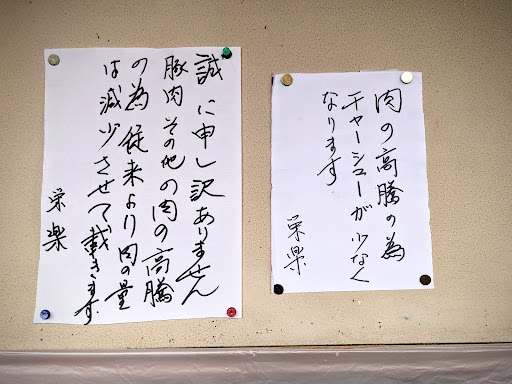 誠に申し訳ありません
豚肉その他の肉の高騰
の為従来より肉の量
は減少させて戴きます.
栄楽
肉の高騰の為
チャーシューが少なく
なります
栄楽